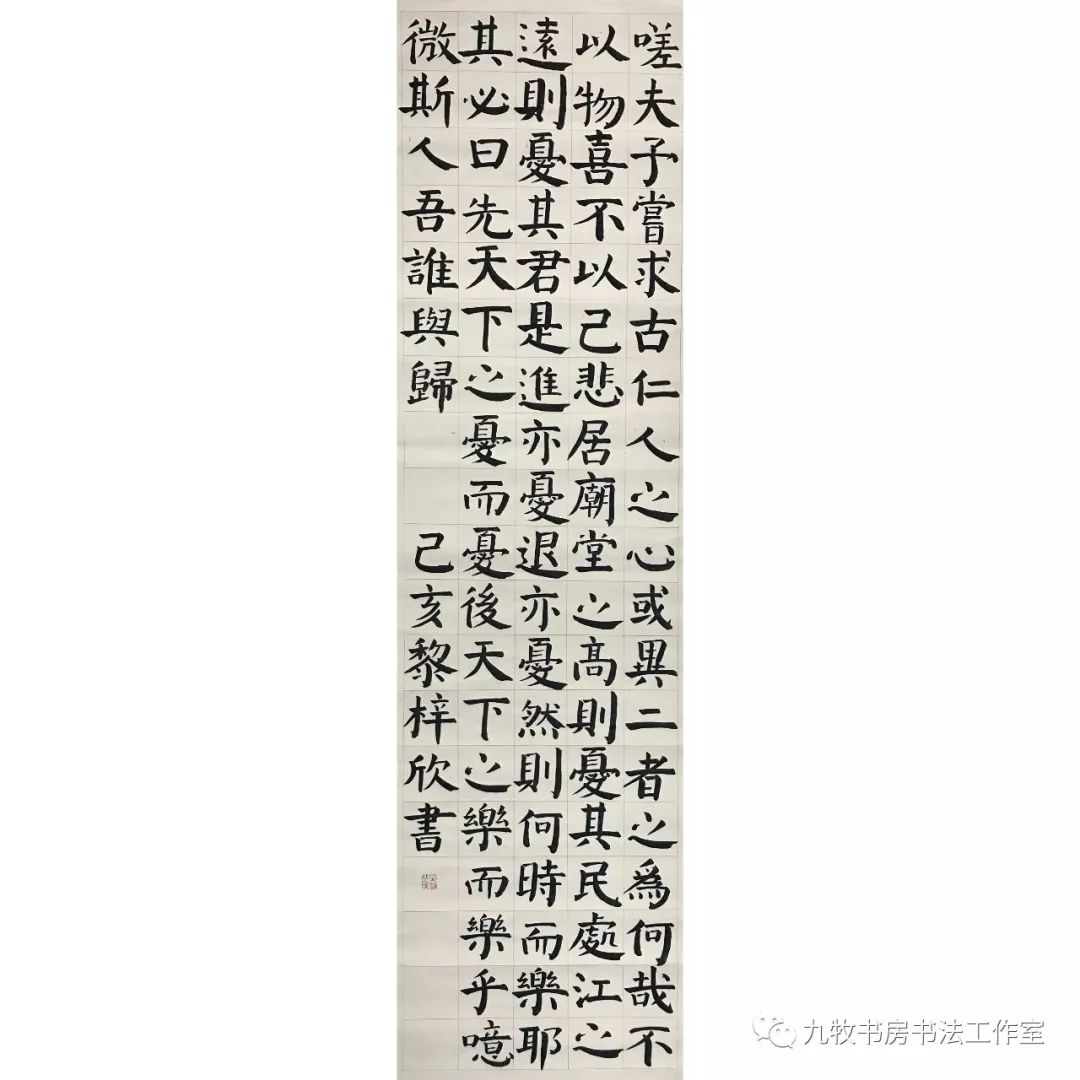 嗟夫予嘗求古仁人之心或異二者之為何哉不
以物喜不以己悲居廟堂之高則憂其民處江之
遠則憂其君是進亦憂退亦憂然則何時而樂耶
其必曰先天下之憂而憂後天下之樂而樂乎噫
微斯人吾誰與歸
己亥黎梓欣書
九牧书房书法工作室